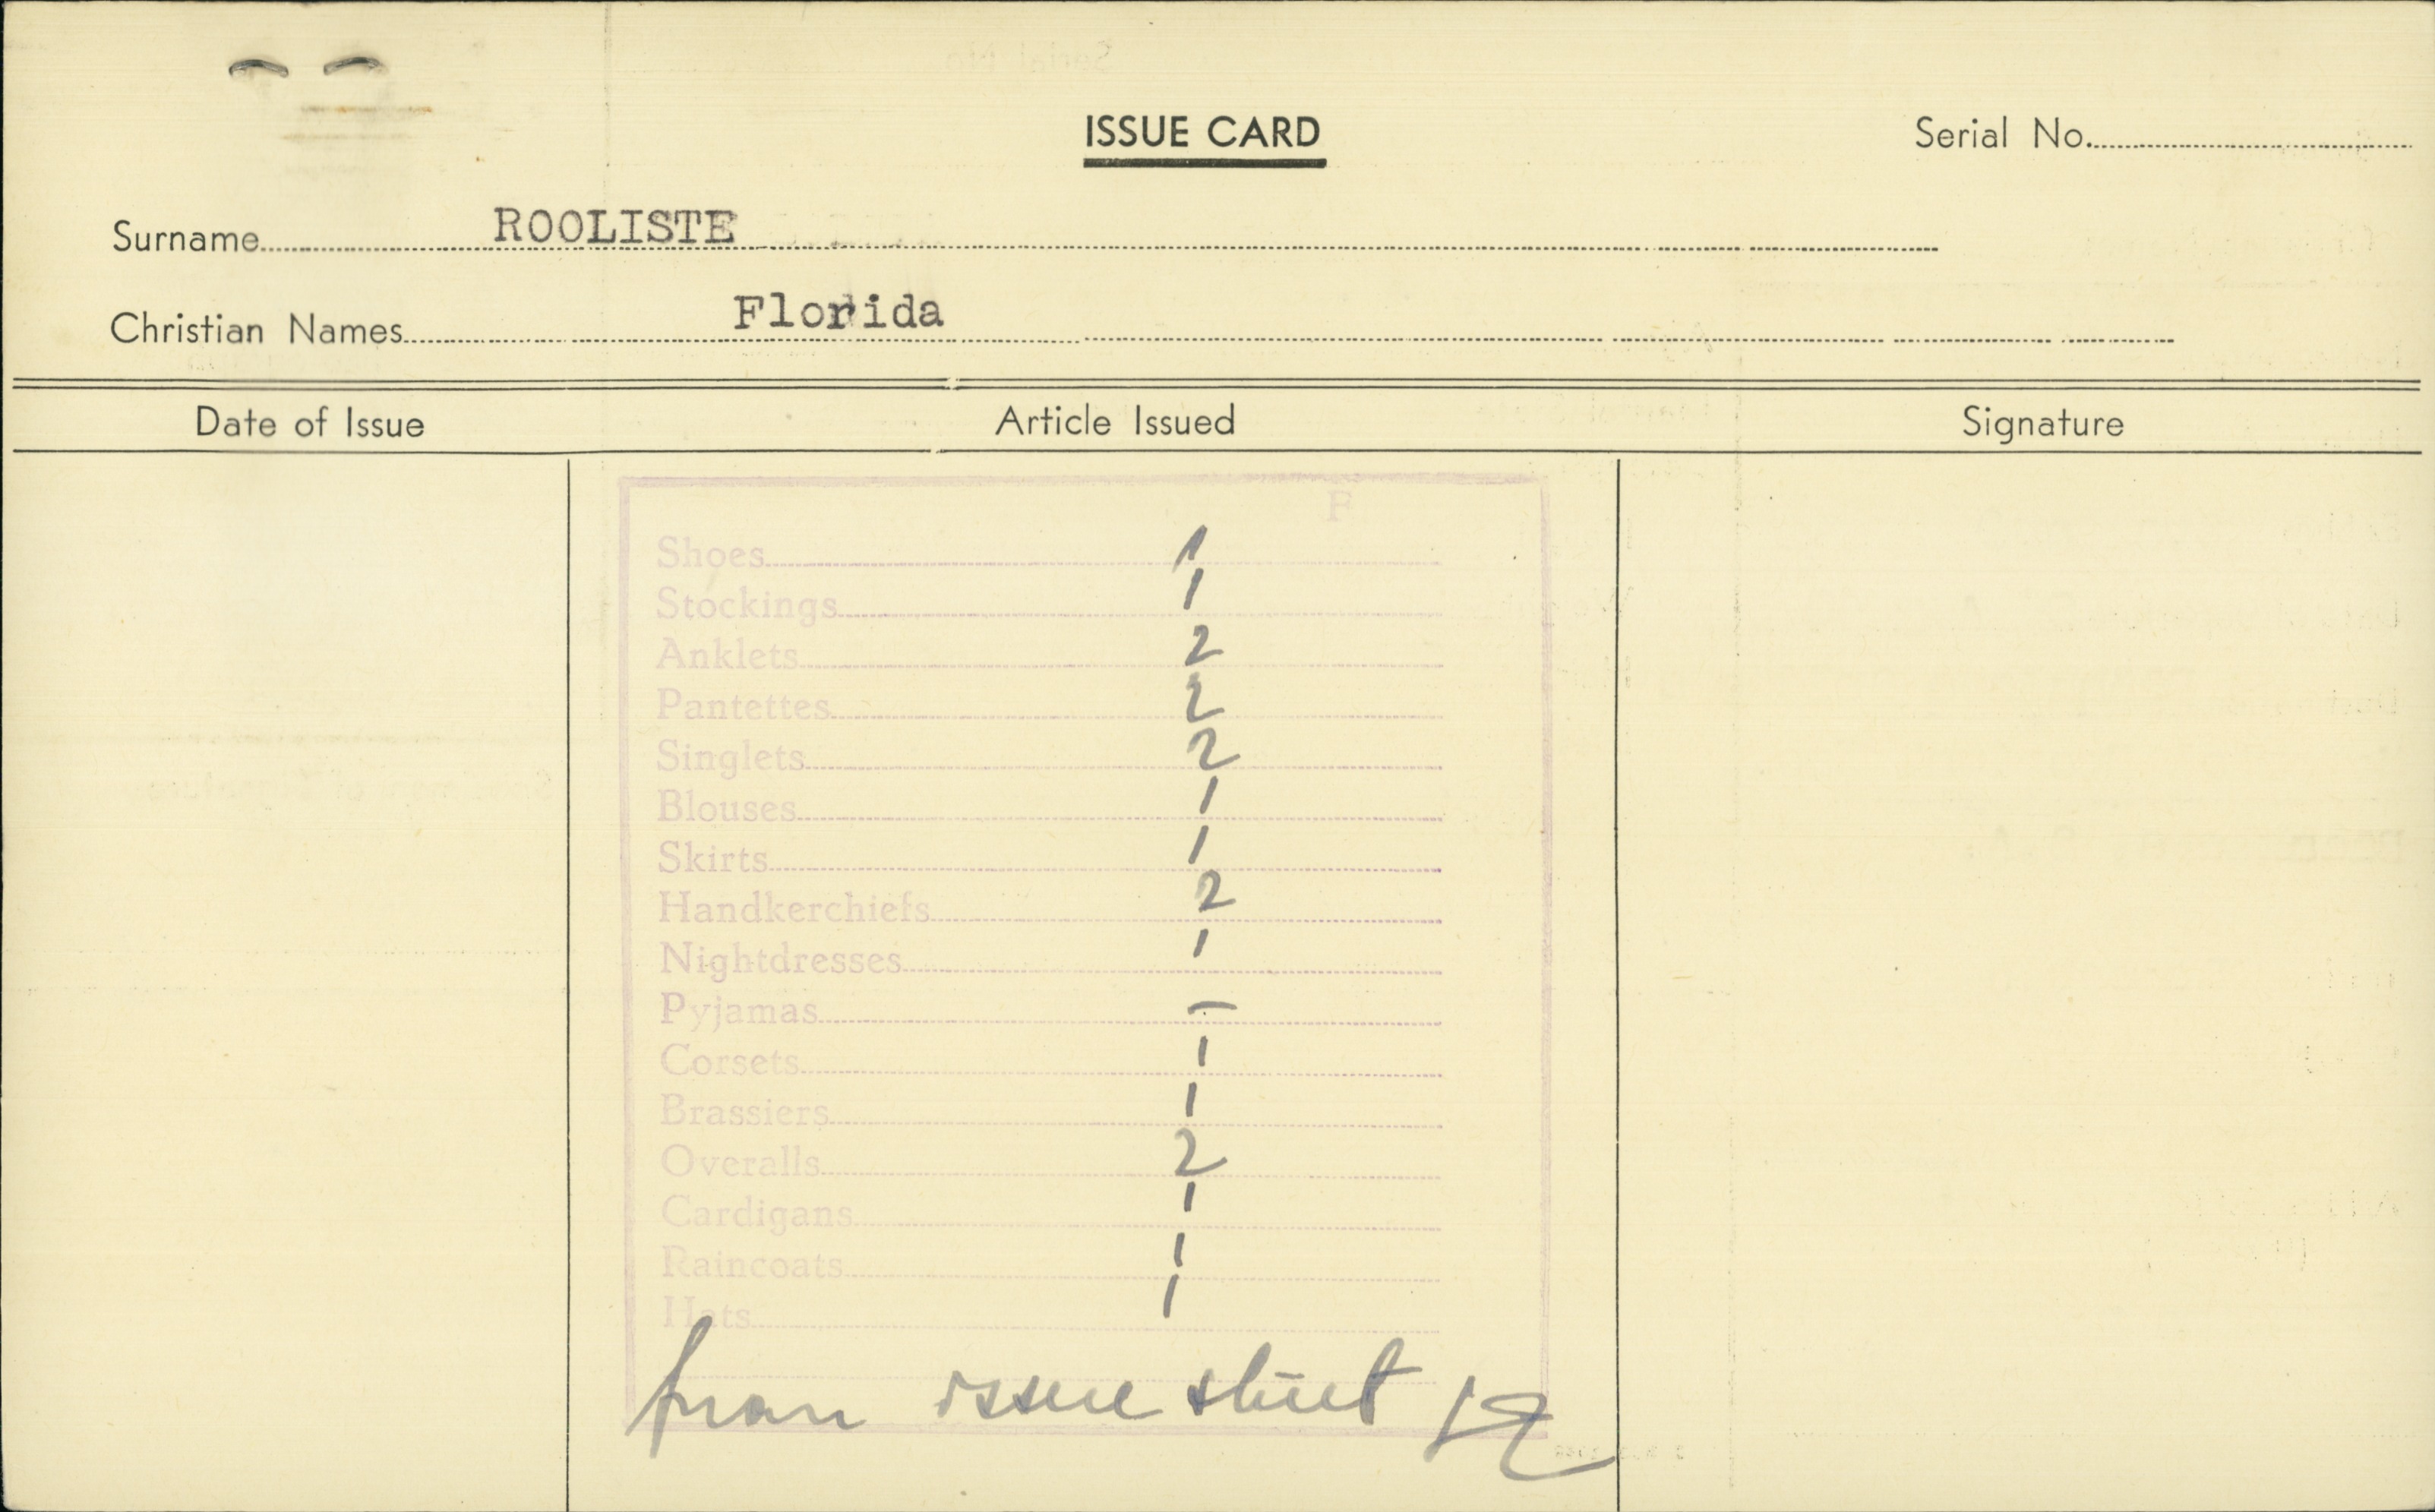 ISSUE CARD
Serial No.
Surname ROOLISTE
Christian Names Florida
Date of Issue Article Issued Signature
F
Shoes 1
Stockings 1
Anklets 2
Pantettes 2
Singlets 2
Blouses 1
Skirts 1
Handkerchiefs 2
Nightdresses 1
Pyjamas —
Corsets 1
Brassiers 1
Overalls 2
Cardigans 1
Raincoats 1
Hats 1
from issue sheet